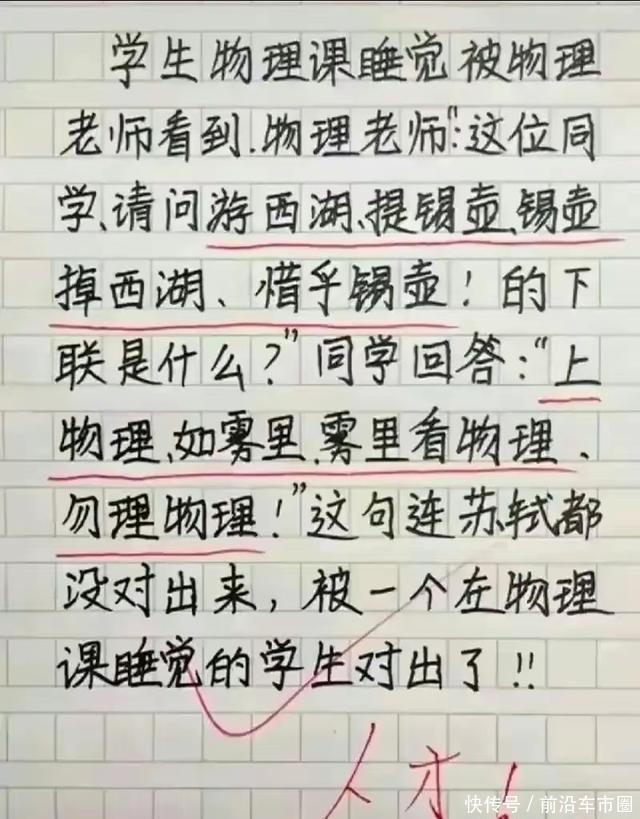 学生物理课睡觉被物理
老师看到.物理老师":这位同
学、请问游西湖、提锡壶、锡壶
掉西湖、惜乎锡壶！的下
联是什么？"同学回答："上
物理、如雾里、雾里看物理、
勿理物理！"这句连苏轼都
没对出来，被一个在物理
课睡觉的学生对出了!!
人才！
快传号／前沿车市圈